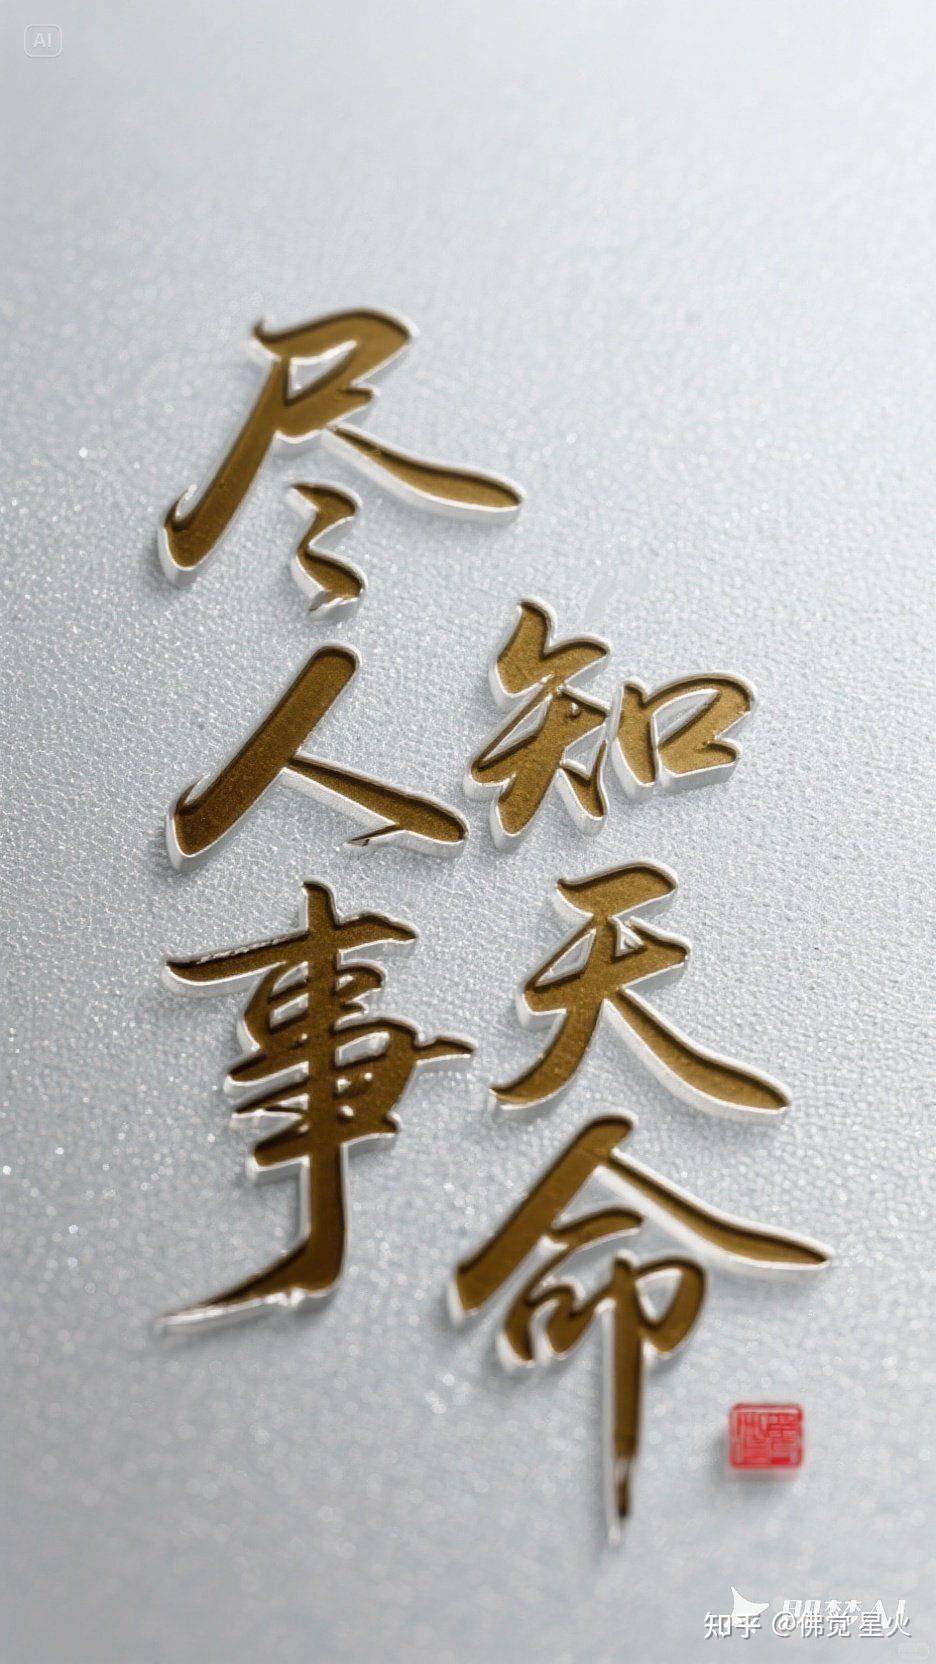 AI
尽人事
知天命
即梦AI
知乎 @佛觉 星火